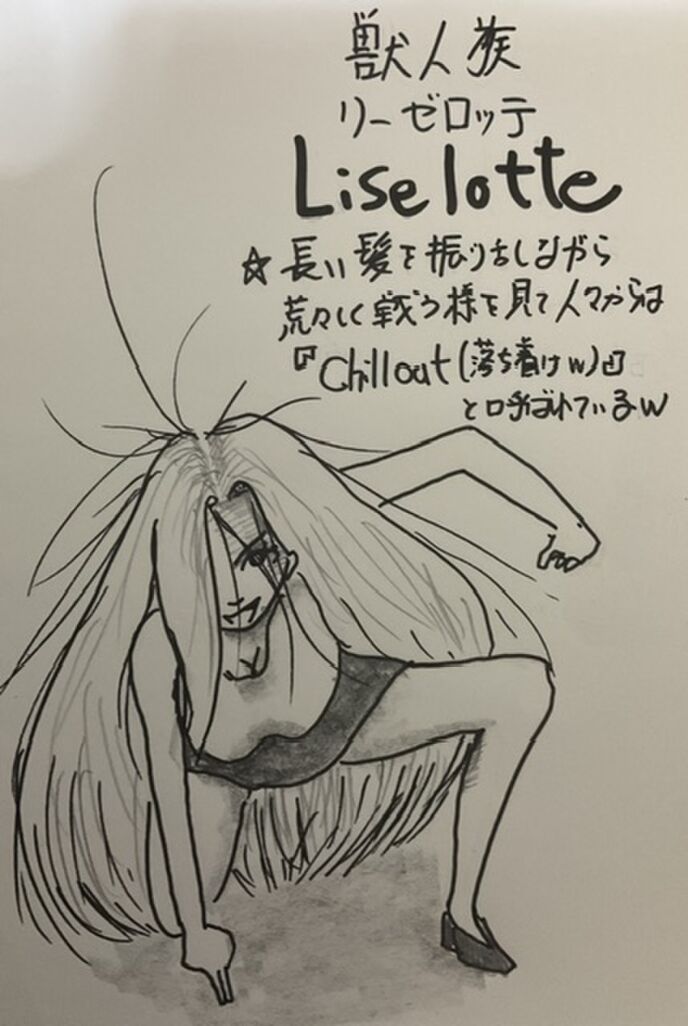 獣人族
リーゼロッテ
Liselotte
☆長い髪を振り乱しながら
荒々しく戦う様を見て人々からは
『Chillout(落ち着けw)』
と呼ばれているw